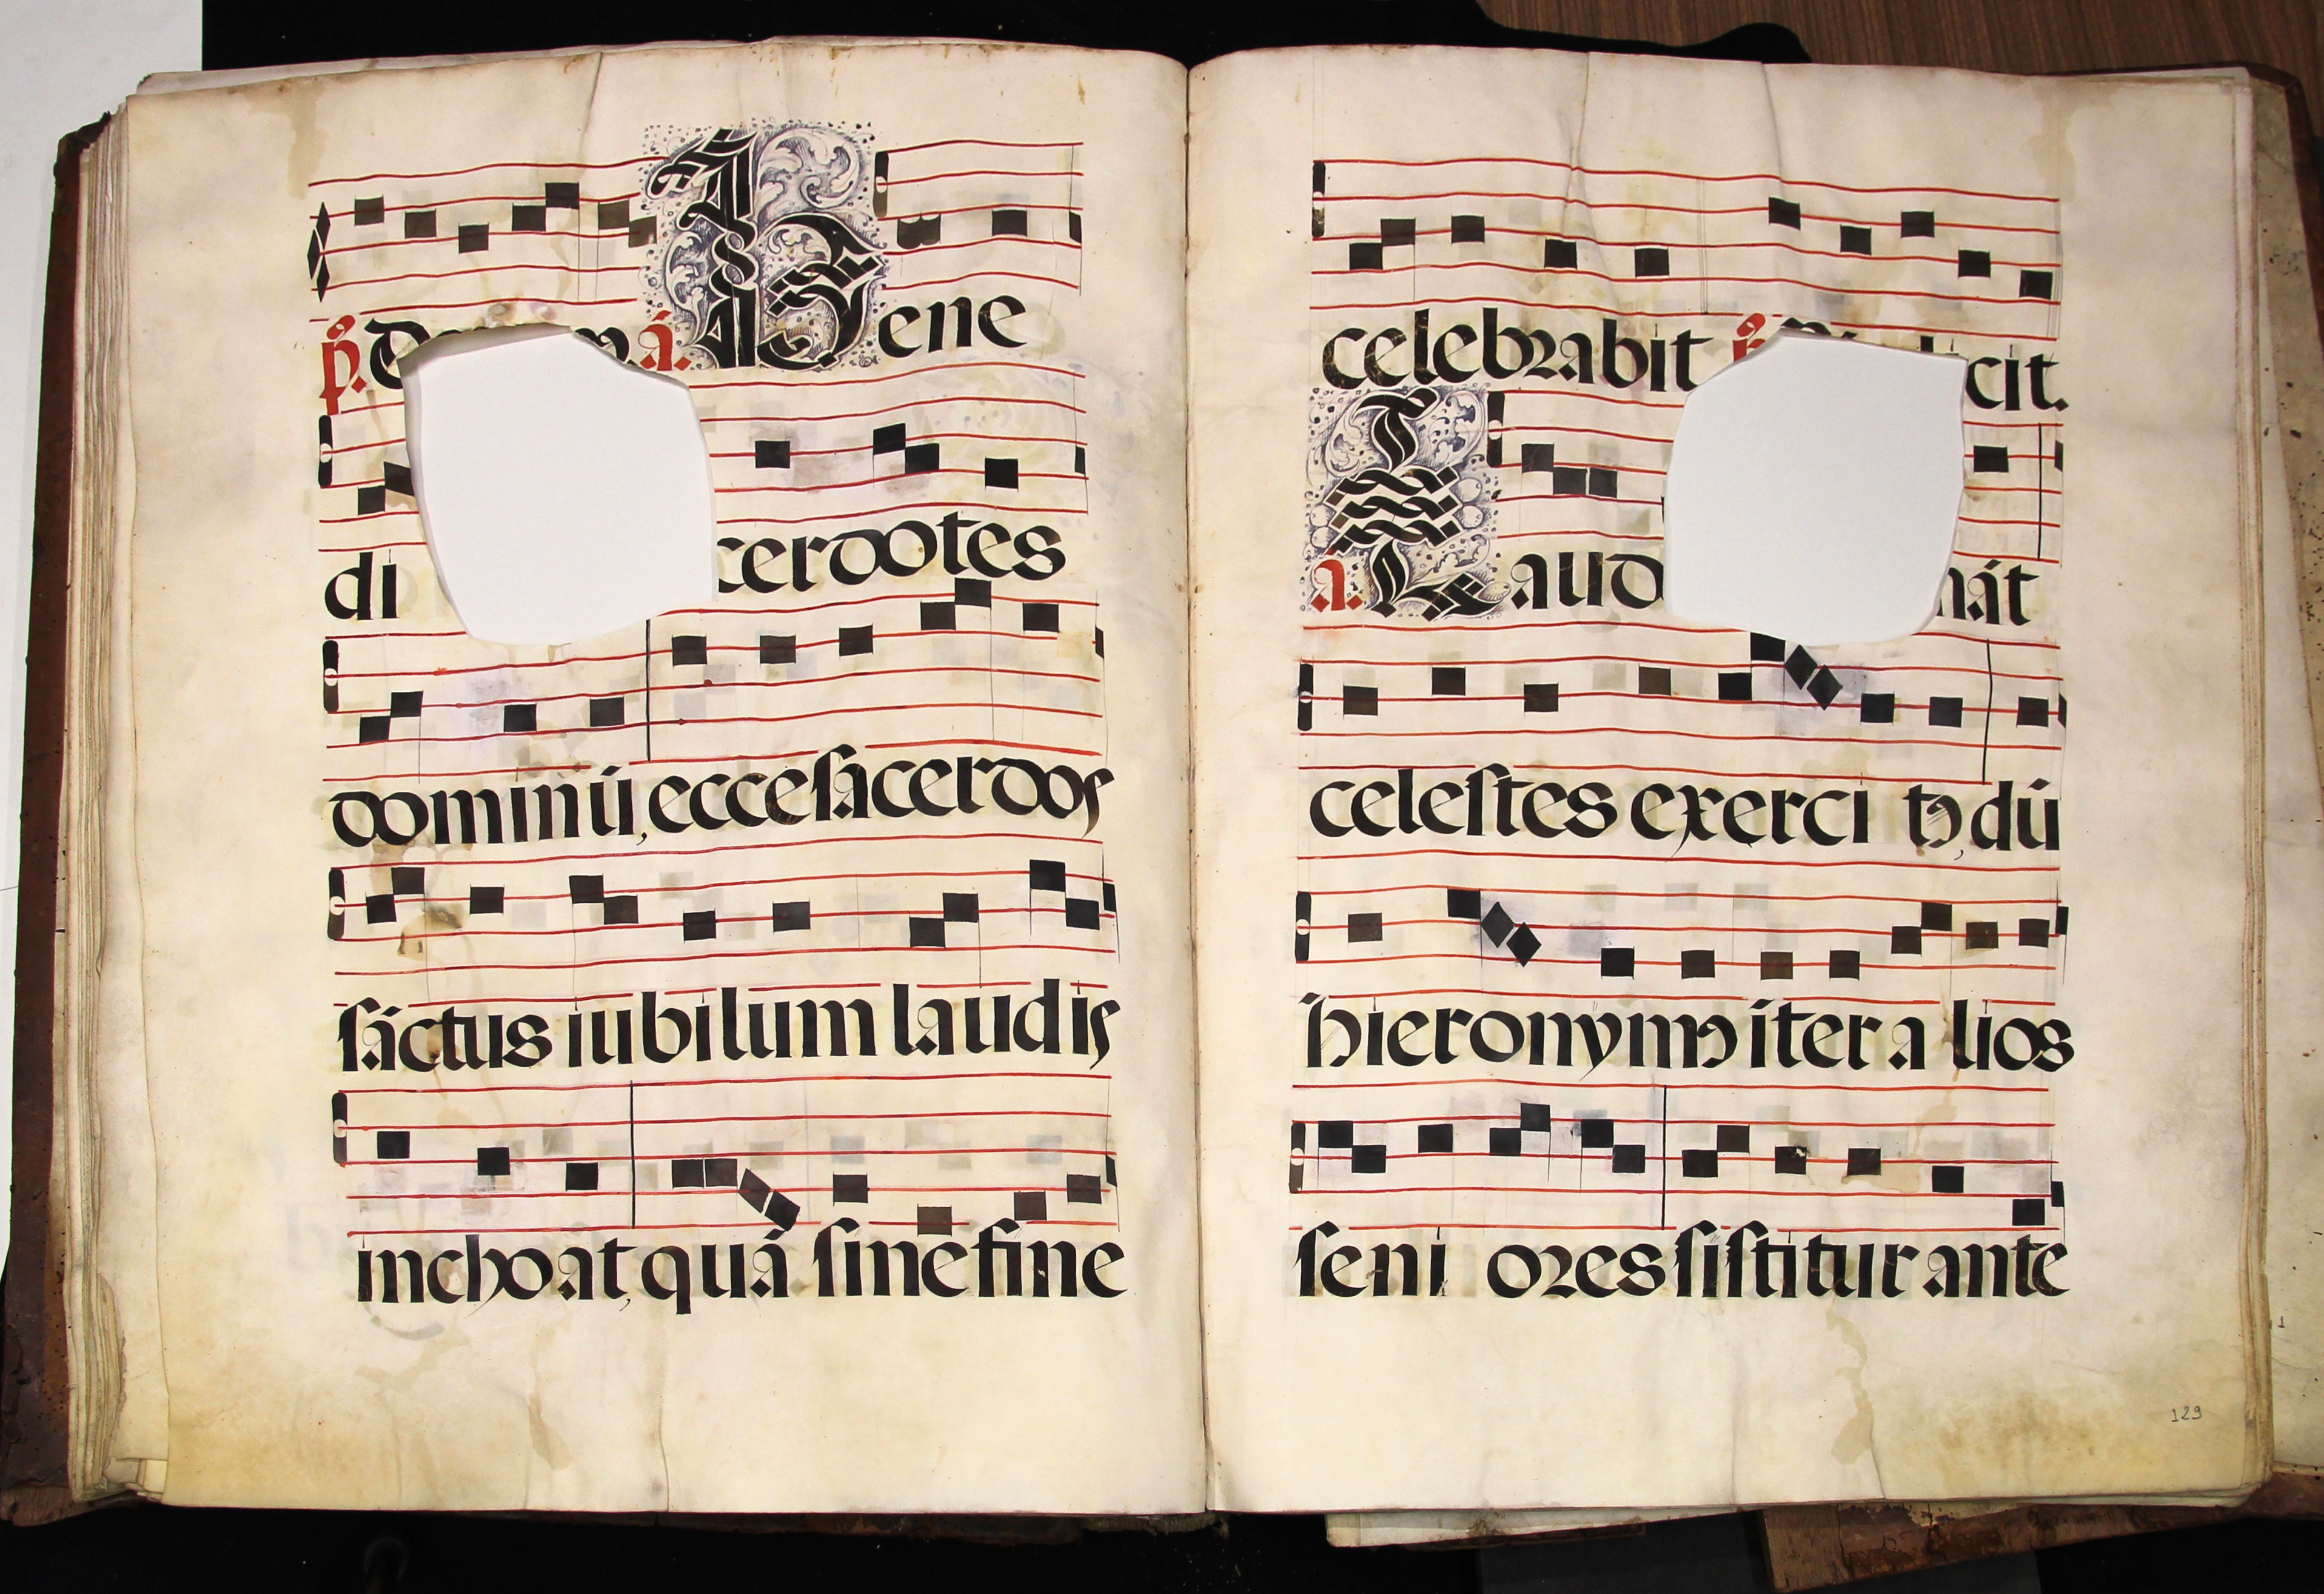 Bene
di cerdotes
dominū, ecce sacerdos
sāctus iubilum laudis
inchoat, quā sine fine
celebrabit cit.
a. Laud nāt
celestes exerci tꝰ, dū
hieronymꝰ iter a lios
seni ores sistitur ante
129